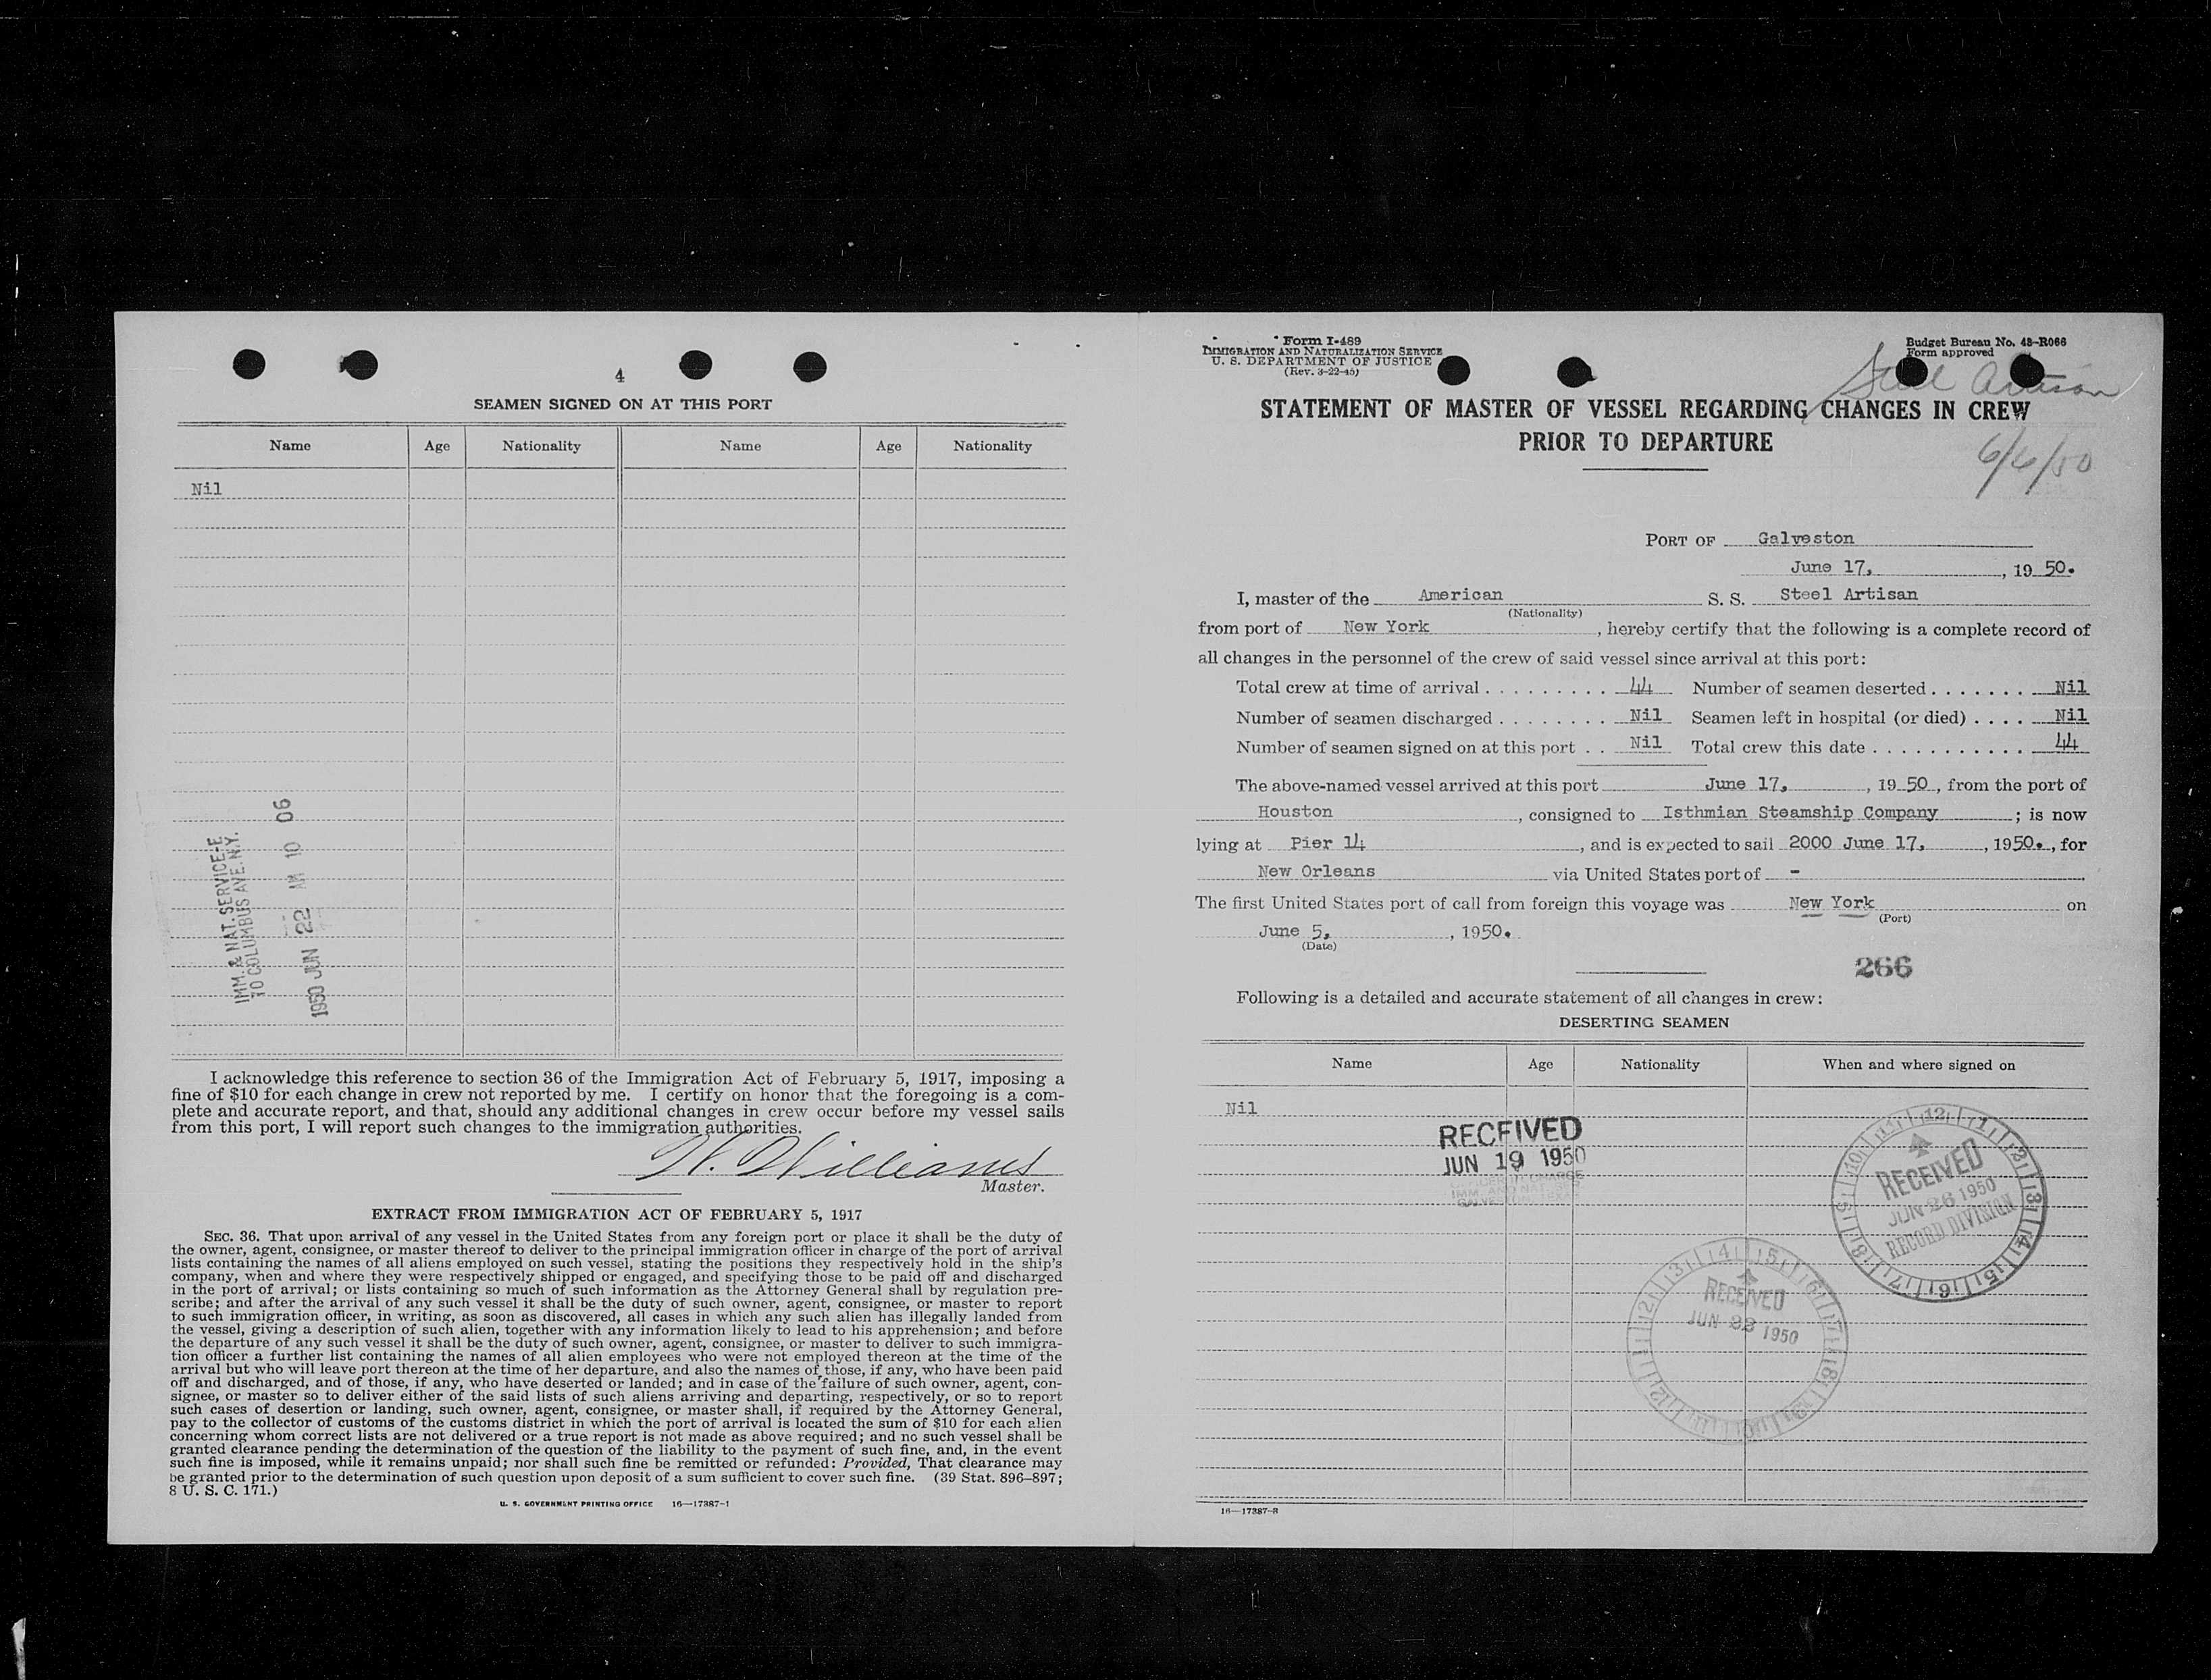 4
SEAMEN SIGNED ON AT THIS PORT
Name Age Nationality Name Age Nationality
Nil
IMM. & NAT. SERVICE-E
TO COLUMBUS AVE. N.Y.
1950 JUN 22 AM 10 06
I acknowledge this reference to section 36 of the Immigration Act of February 5, 1917, imposing a
fine of $10 for each change in crew not reported by me. I certify on honor that the foregoing is a com-
plete and accurate report, and that, should any additional changes in crew occur before my vessel sails
from this port, I will report such changes to the immigration authorities.
W. Williams
Master.
EXTRACT FROM IMMIGRATION ACT OF FEBRUARY 5, 1917
SEC. 36. That upon arrival of any vessel in the United States from any foreign port or place it shall be the duty of
the owner, agent, consignee, or master thereof to deliver to the principal immigration officer in charge of the port of arrival
lists containing the names of all aliens employed on such vessel, stating the positions they respectively hold in the ship's
company, when and where they were respectively shipped or engaged, and specifying those to be paid off and discharged
in the port of arrival; or lists containing so much of such information as the Attorney General shall by regulation pre-
scribe; and after the arrival of any such vessel it shall be the duty of such owner, agent, consignee, or master to report
to such immigration officer, in writing, as soon as discovered, all cases in which any such alien has illegally landed from
the vessel, giving a description of such alien, together with any information likely to lead to his apprehension; and before
the departure of any such vessel it shall be the duty of such owner, agent, consignee, or master to deliver to such immigra-
tion officer a further list containing the names of all alien employees who were not employed thereon at the time of the
arrival but who will leave port thereon at the time of her departure, and also the names of those, if any, who have been paid
off and discharged, and of those, if any, who have deserted or landed; and in case of the failure of such owner, agent, con-
signee, or master so to deliver either of the said lists of such aliens arriving and departing, respectively, or so to report
such cases of desertion or landing, such owner, agent, consignee, or master shall, if required by the Attorney General,
pay to the collector of customs of the customs district in which the port of arrival is located the sum of $10 for each alien
concerning whom correct lists are not delivered or a true report is not made as above required; and no such vessel shall be
granted clearance pending the determination of the question of the liability to the payment of such fine, and, in the event
such fine is imposed, while it remains unpaid; nor shall such fine be remitted or refunded: Provided, That clearance may
be granted prior to the determination of such question upon deposit of a sum sufficient to cover such fine. (39 Stat. 896-897;
8 U. S. C. 171.)
U. S. GOVERNMENT PRINTING OFFICE 16—17387-1
Form I-489
IMMIGRATION AND NATURALIZATION SERVICE
U. S. DEPARTMENT OF JUSTICE
(Rev. 3-22-45)
Budget Bureau No. 43-R066
Form approved
Steel Artisan
STATEMENT OF MASTER OF VESSEL REGARDING CHANGES IN CREW
PRIOR TO DEPARTURE
6/6/50
PORT OF Galveston
June 17, , 19 50.
I, master of the American S. S. Steel Artisan
(Nationality)
from port of New York , hereby certify that the following is a complete record of
all changes in the personnel of the crew of said vessel since arrival at this port:
Total crew at time of arrival . . . . . . . . . 44 Number of seamen deserted . . . . . . . Nil
Number of seamen discharged . . . . . . . . Nil Seamen left in hospital (or died) . . . . Nil
Number of seamen signed on at this port . . Nil Total crew this date . . . . . . . . . . . . 44
The above-named vessel arrived at this port June 17, , 19 50 , from the port of
Houston , consigned to Isthmian Steamship Company ; is now
lying at Pier 14 , and is expected to sail 2000 June 17, , 1950. , for
New Orleans via United States port of -
The first United States port of call from foreign this voyage was New York on
(Port)
June 5, , 1950.
(Date)
266
Following is a detailed and accurate statement of all changes in crew:
DESERTING SEAMEN
Name Age Nationality When and where signed on
Nil
RECEIVED
JUN 19 1950
RECEIVED
JUN 26 1950
RECORD DIVISION
RECEIVED
JUN 1950